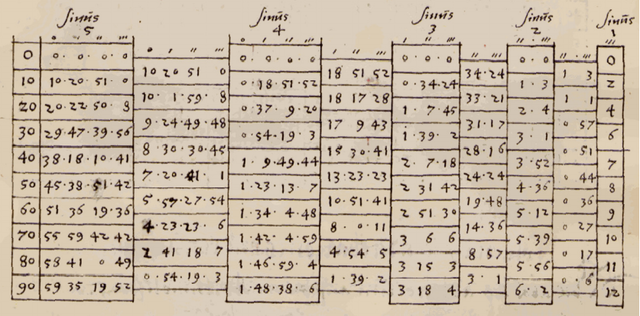 Sinūs Sinūs Sinūs Sinūs Sinūs
5 4 3 2 1
0 0·0·0·0 0·0·0·0 0·0·0 0·0 0
10 20 51 0 18 51 52 34·24 1 3
10 10·20·51·0 0·18·51·52 0·34·24 1·3 2
10·1·59·8 18 17 28 33·21 1 1
20 20·22 50·8 0·37·9·20 1 7 45 2·4 4
9·24·49·48 17 9 43 31·17 0 57
30 29·47·39·56 0·54·19·3 1·39·2 3·1 6
8·30·30·45 15 30·41 28·16 0 51
40 38·18·10·41 1·9·49·44 2·7·18 3·52 7
7·20·41·1 13·23·23 24·24 0 44
50 45·38·51·42 1·23·13·7 2 31 42 4·36 8
5·57·27·54 10·51·41 19·48 0 36
60 51 36 19·36 1·34·4·48 2 51 30 5·12 9
4·23·23·6 8·0·11 14·36 0 27
70 55 59 42 42 1·42·4·59 3 6 6 5·39 10
2 41 18 7 4·54·5 8·57 0 17
80 58 41 0 49 1·46·59·4 3 15 3 5·56 11
0·54·19·3 1·39·2 3·1 0·6
90 59 35 19 52 1·48·38·6 3 18 4 6·2 12